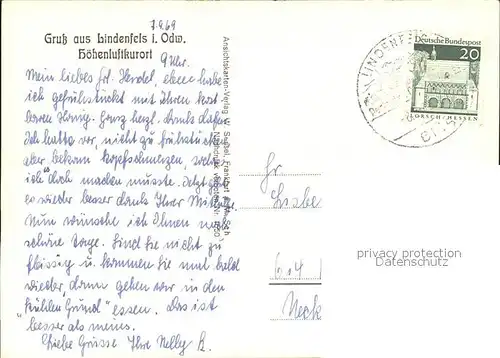 7.9.69
Gruß aus Lindenfels i. Odw.
Höhenluftkurort
9 Uhr.
Mein liebes Frl. Herdel, eben habe
ich gefrühstückt mit Ihrem kost-
baren Honig. Ganz herzl. Dank dafür.
Ich hatte vor, nicht zu frühstücken
aber bekam Kopfschmerzen, sodaß
ich doch machen musste. Jetzt
es wieder besser dank Ihrer
Nun wünsche ich Ihnen noch
schöne Tage. Sind Sie nicht zu
fleissig u. kommen Sie mal bald
wieder, dann gehen wir in den
"Kühlen Grund" essen. Das ist
besser als mens.
Liebe Grüsse Ihre Nelly B.
Ansichtskarten-Verlag
Frankfurt
LINDENFELS
Deutsche Bundespost
20
LORSCH/HESSEN
Fr
Lisbe
614
Neck
privacy protection
Datenschutz